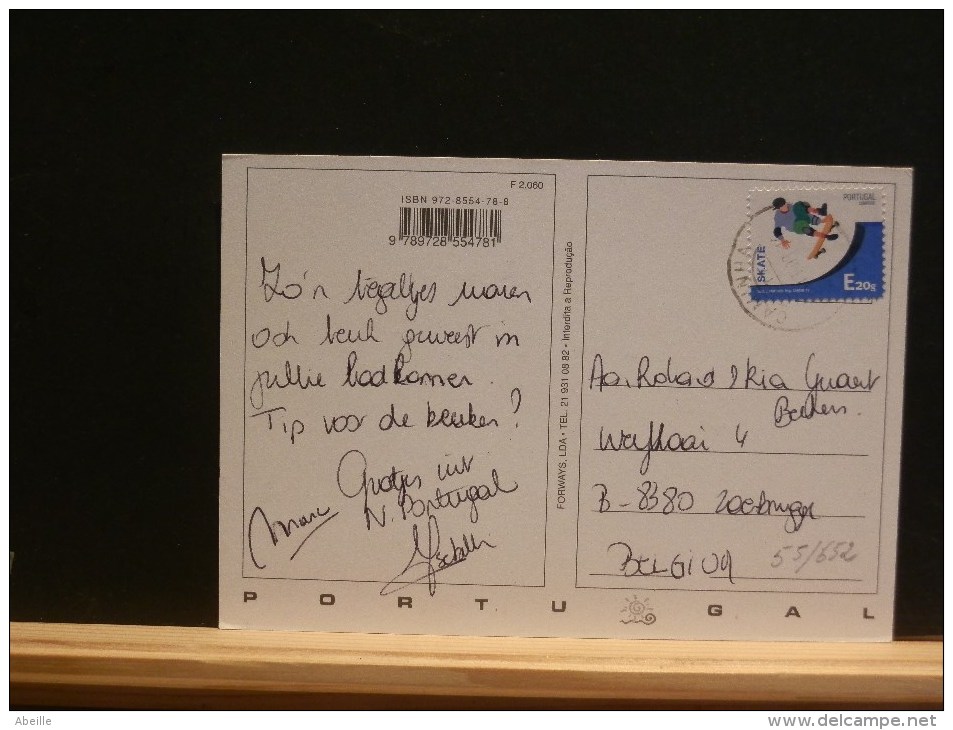 F 2.060
ISBN 972-8554-78-8
9 789728 554781
Zo'n tegeltjes waren
ook leuk geweest in
jullie badkamer.
Tip voor de keuken?
Groetjes uit
N. Portugal
Marc
FORWAYS, LDA • TEL. 21 931 08 82 • Interdita a Reprodução
PORTUGAL
SKATE
E20g
CAMINHA
Aan
Werfkaai 4
B-8380 Zeebrugge
BELGIUM
55/652
PORTUGAL
Abeille
www.delcampe.net